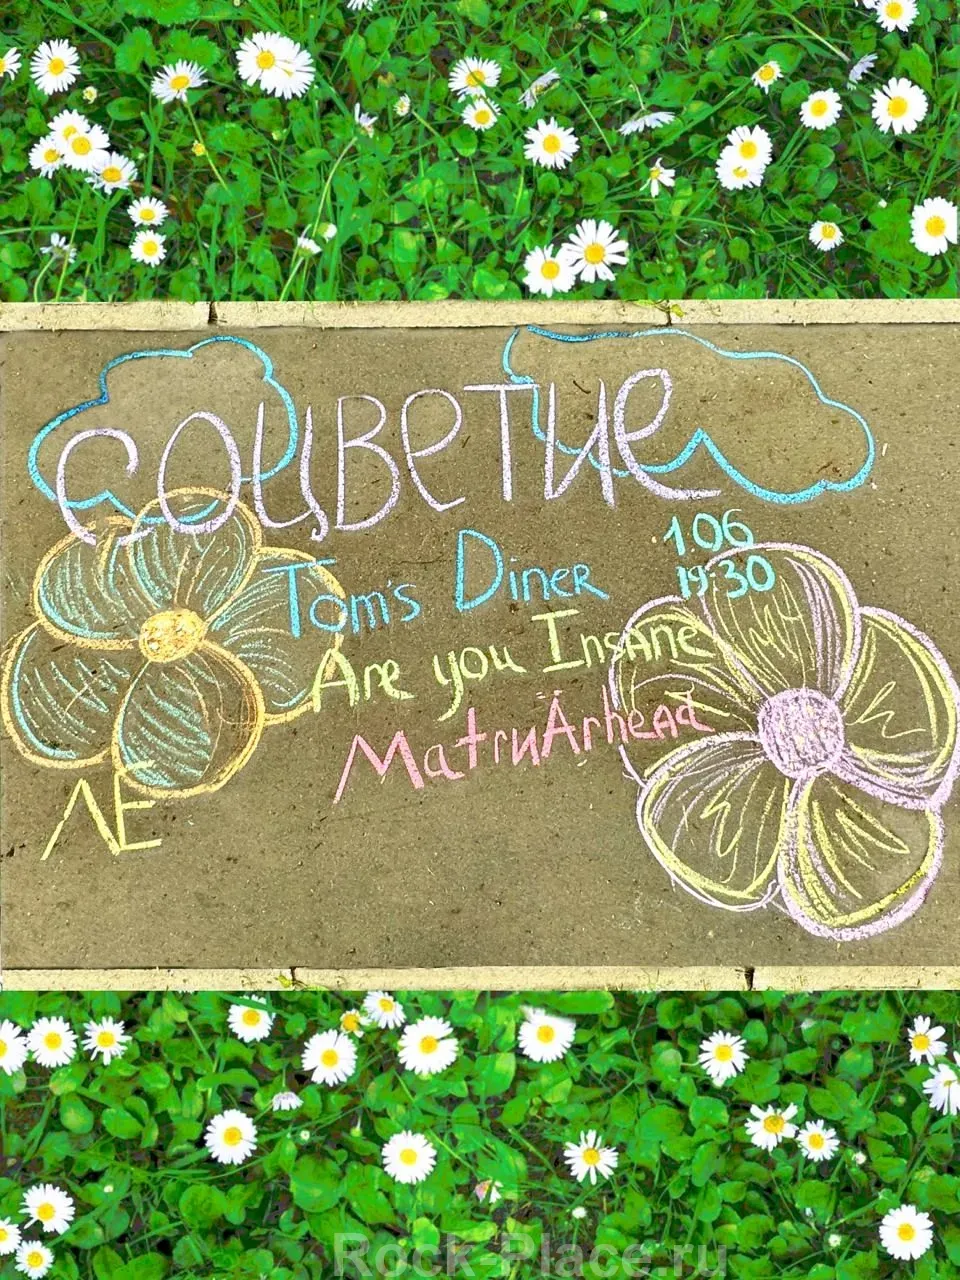 соцветие
1.06
19:30
Tom's Diner
Are you Insane
MatriÄrhead
ЛЕ
Rock-Place.ru